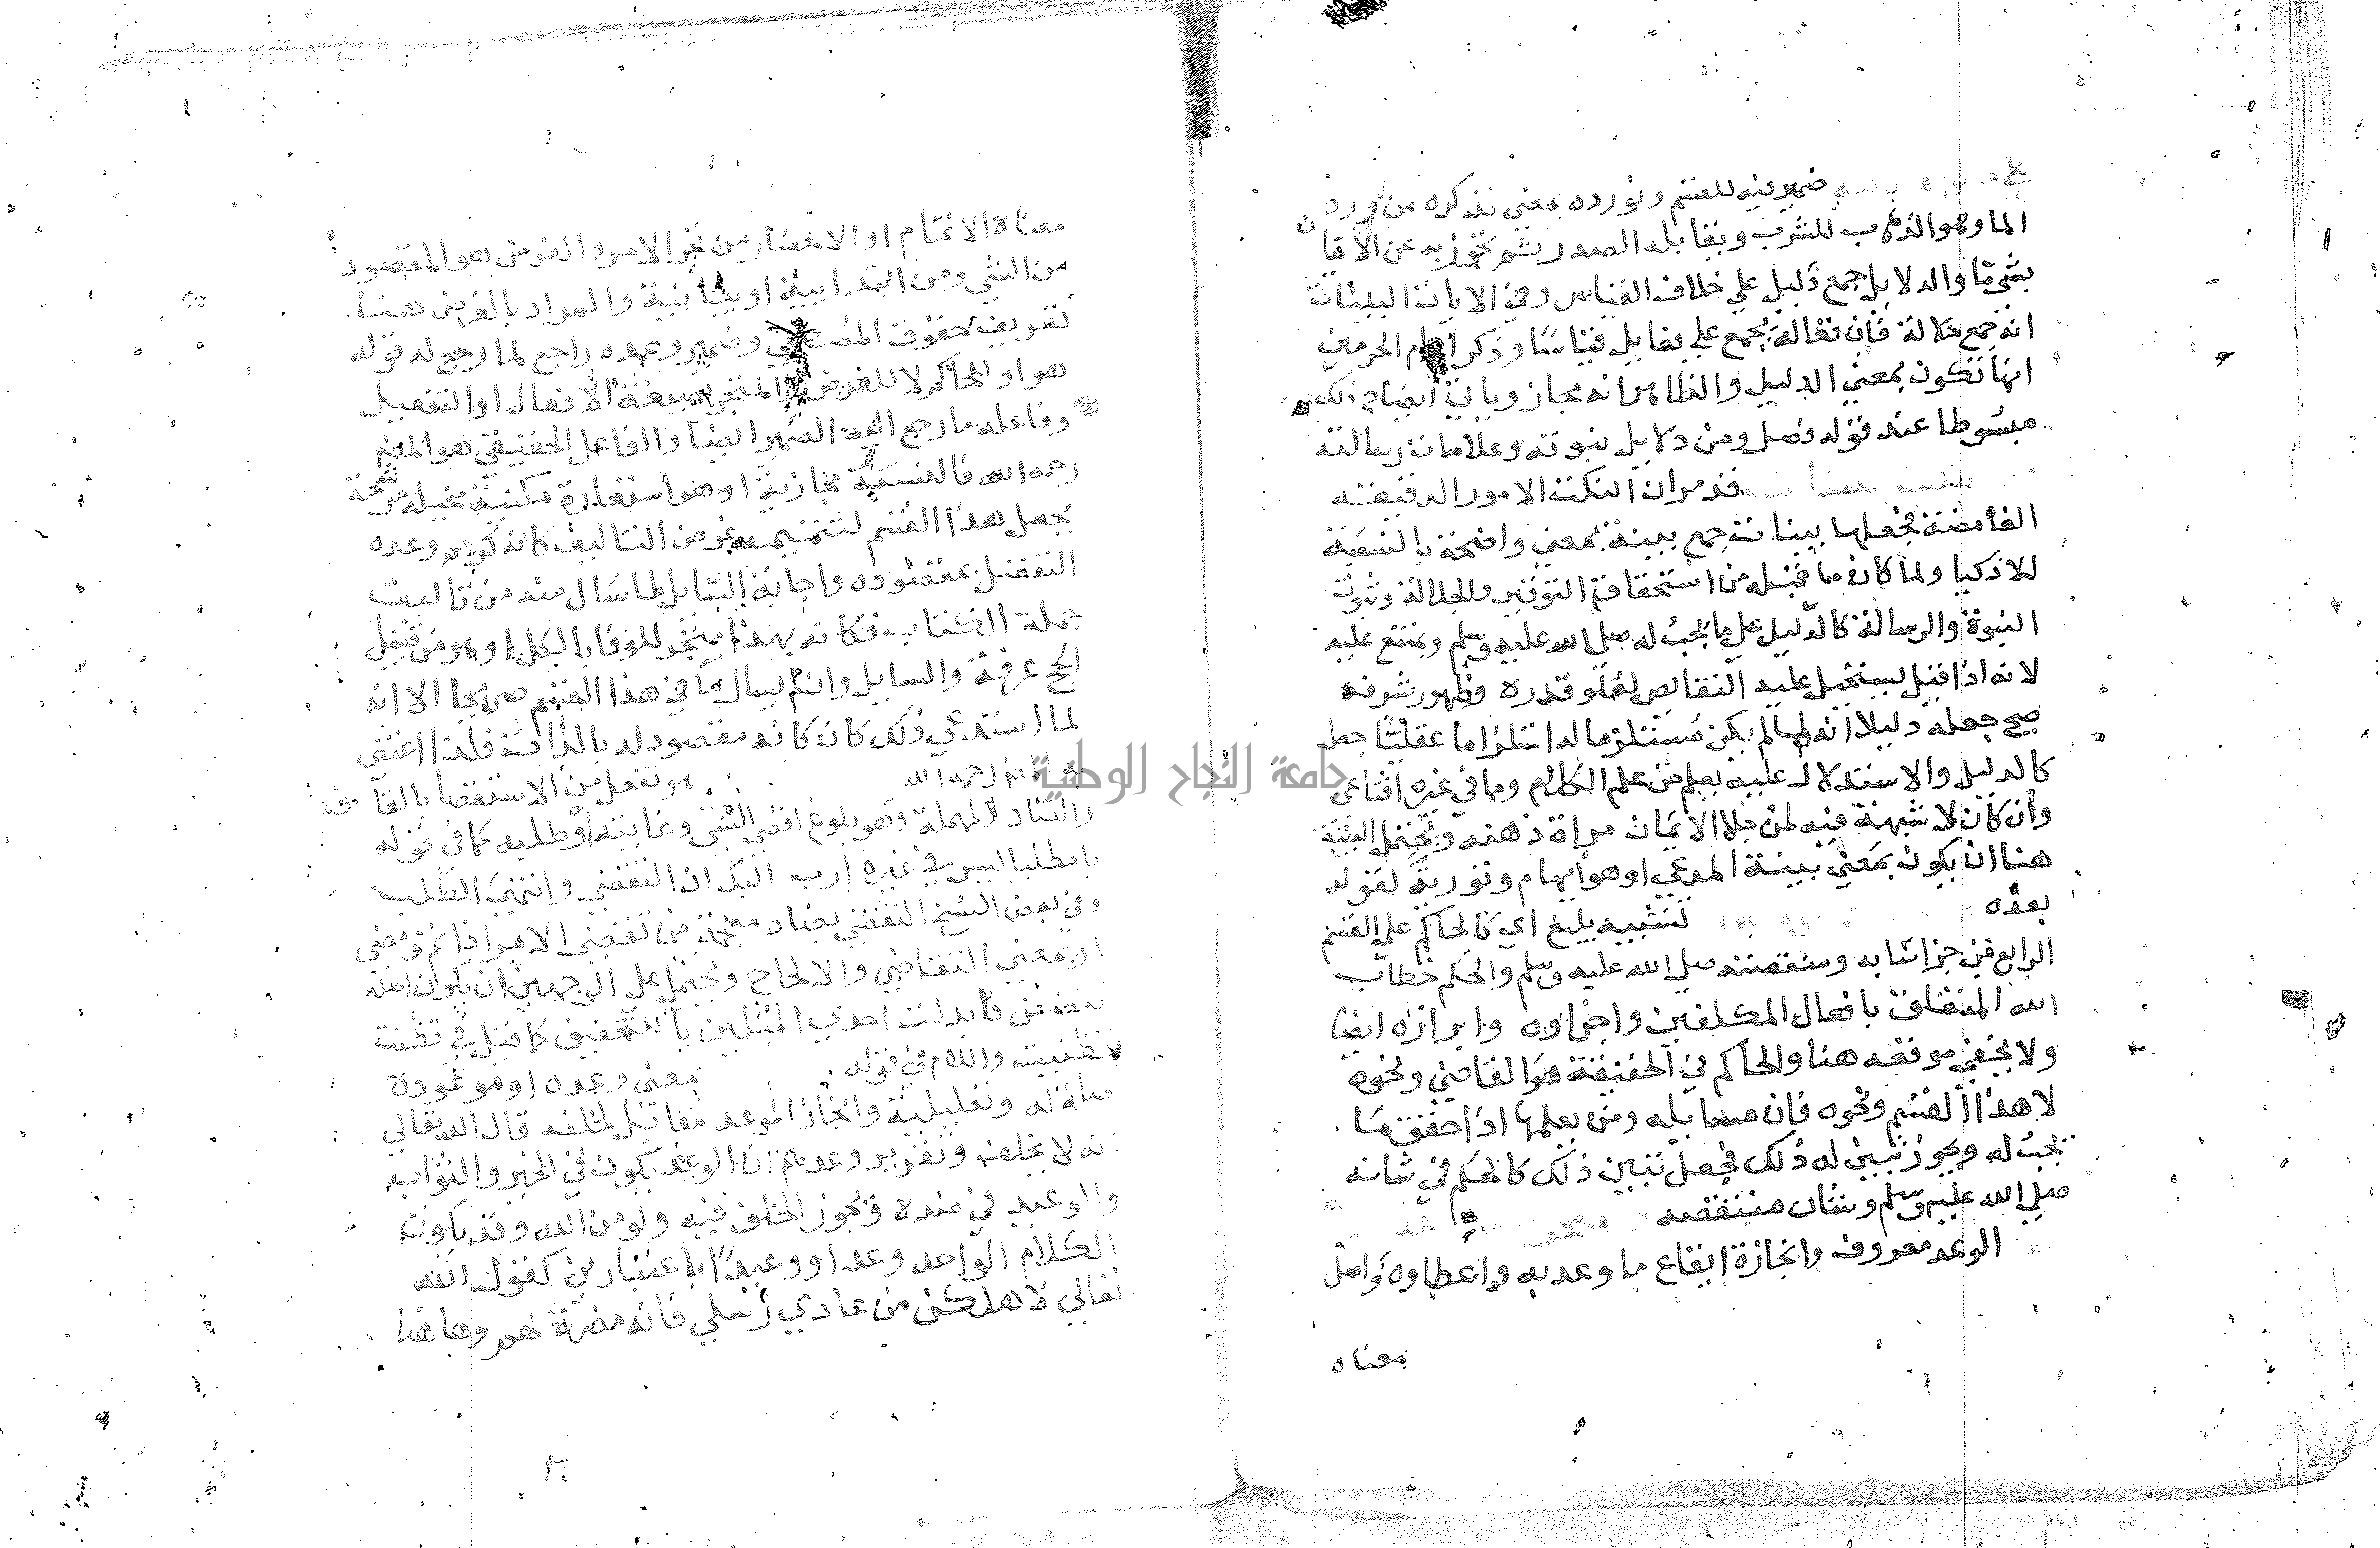 ضمير فيه للقسم ونورده بمعني نذكره من ورد
الما وهو الذهاب للشرب ويقابله الصدر ثم تجوز به عن الاتيان
بشي ما والدلايل جمع دليل علي خلاف القياس وفي الايات البينات
انه جمع دلالة فان فعالة يجمع علي فعايل قياسا وذكر امام الحرمين
انها تكون بمعني الدليل والظاهر انه مجاز وياتي ايضاح ذلك
مبسوطا عند قوله فصل ومن دلايل نبوته وعلامات رسالته
قد مر ان النكت الامور الدقيقة
الغامضة فجعلها بينات جمع بينة بمعني واضحة بالنسبة
للاذكيا ولما كان ما قبله من استحقاقه التوقير والجلالة وثبوت
النبوة والرسالة كالدليل علي ما يجب له صلي الله عليه وسلم ويمتنع عليه
لانه اذا قيل يستحيل عليه النقايص لعلو قدره وظهور شرفه
صح جعله دليلا انه لما لم يكن مستلزما له استلزاما عقليا جعل
كالدليل والاستدلال عليه يعلم من علم الكلام وما في غيره اقناعي
وان كان لا شبهة فيه لمن جلا الايمان مراة ذهنه ويحتمل البينة
هنا ان يكون بمعني بينة المدعي او هو ايهام وتورية لقوله
بعده
تشبيه بليغ اي كالحاكم علي القسم
الرابع من جزا شابه ومنقصته صلي الله عليه وسلم والحكم خطاب
الله المتعلق بافعال المكلفين واجراوه وابرازه ايضا
ولا يخفي موقعه هنا والحاكم في الحقيقة هو القاضي ونحوه
لا هذا القسم ونحوه فان مسايله ومن يعلمها اذا حقق ما
يجب له ويجوز تبين له ذلك فجعل تبين ذلك كالحكم في شانه
صلي الله عليه وسلم وشان منتقصه
الوعد معروف وانجازه ايقاع ما وعد به واعطاوه واصل
معناه
معناه الاتمام او الاحضار من نجز الامر والغرض هو المقصود
من الشي ومن ابتدايية او بيانية والمراد بالغرض هنا
تعريف حقوق المصطفي وضمير وعده راجع لما رجع له قوله
هو او للحاكم لا للغرض المنجز بصيغة الافعال او التفعيل
وفاعله ما رجع اليه الضمير ايضا والفاعل الحقيقي هو المص
رحمه الله فالتسمية مجازية او هو استعارة مكنية مخيلة مرشحة
بجعل هذا القسم لتتميمه غرض التاليف كانه كريم وعده
التفضل بمقصوده واجابة السايل لما سال منه من تاليف
جملة الكتاب فكانه بهذا منجز للوفا بالكل او هو من قبيل
الحج عرفة والسايل وان لم يسال ما في هذا القسم صريحا الا انه
لما استدعي ذلك كان كانه مقصود له بالذات فلذا اعتني
به المص رحمه الله
هو تفعل من الاستقصا بالقاف
والصاد المهملة وهو بلوغ اقصي الشي وغايته او طلبه كما في قوله
يا مطلبا ليس في غيره ارب اليك ان التقصي وانتهي الطلب
وفي بعض النسخ التقضي بضاد معجمة من تقضي الامر اذا تم ومضي
او بمعني التقاضي والالحاح ويحتمل علي الوجهين ان يكون اصله
تقضض فابدلت احدي المثلين يا للتخفيف كما قيل في تظننت
تظنيت واللام في قوله
بمعني وعده او موعودة
صلة له وتعليلية وانجاز الموعد مقابل لخلفه قال الله تعالي
انه لا يخلف وتقرير وعدهم ان الوعد يكون في الخير والثواب
والوعيد في ضده ويجوز الخلف فيه ولو من الله وقد يكون
الكلام الواحد وعدا ووعيدا باعتبارين كقول الله
تعالي لاهلكن من عادي رسلي فانه مضرة لهم وها هنا
جامعة النجاح الوطنية